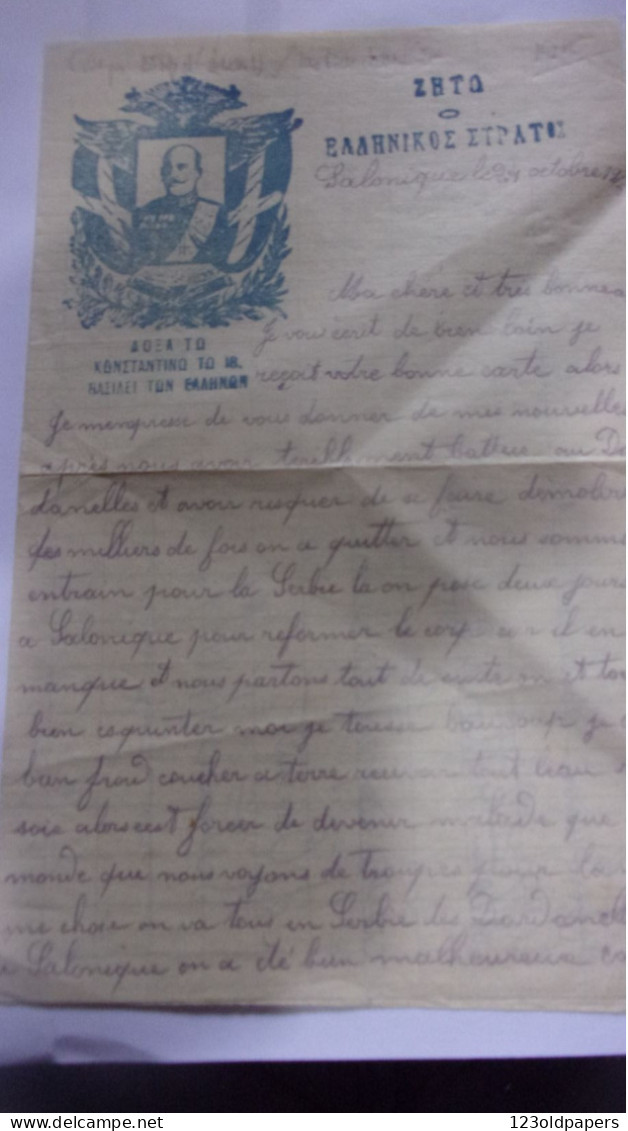 ΖΗΤΩ
Ο
ΕΛΛΗΝΙΚΟΣ ΣΤΡΑΤΟΣ
Salonique le 24 octobre
ΔΟΞΑ ΤΩ
ΚΩΝΣΤΑΝΤΙΝΩ ΤΩ ΙΒ.
ΒΑΣΙΛΕΙ ΤΩΝ ΕΛΛΗΝΩΝ
Ma chère et très bonne
Je vous écrit de bien loin je
reçoit votre bonne carte alors
Je menpresse de vous donner de mes nouvelles
après nous avoir tersllement battue au Da
danelles et avoir risquer de se faire démolir
des milliers de fois on a quitter et nous somme
entrain pour la Serbie la on pose deux jours
a Salonique pour reformer le corp car il en
manque et nous partons tout de suite on et tou
bien esquinter moi je tousse beaucoup je
bien froid coucher a terre recevoir tout leau
soie alors cest forcer de devenir malade que
monde que nous voyons de troupes pour la
me chose on va tous en Serbie des Dardanell
a Salonique on a été bien malheureux ca
123oldpapers